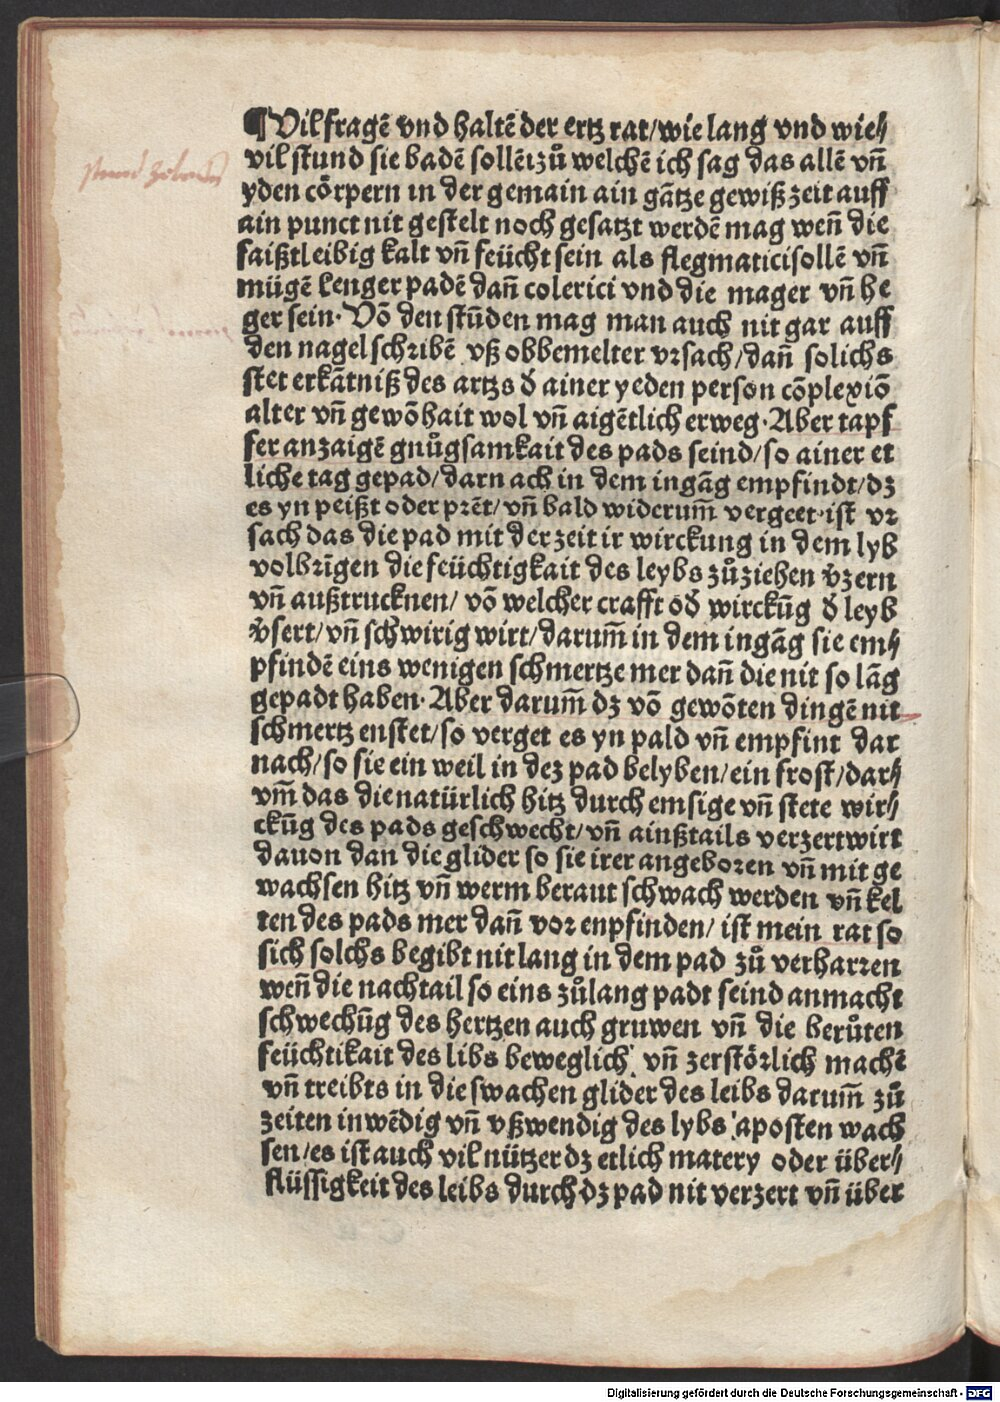 ¶Vil fragē vnd haltē der ertz rat/wie lang vnd wie/
vil stund sie badē sollēīzů welchē ich sag das allē vñ
yden cörpern in der gemain ain gātze gewiß zeit auff
ain punct nit gestelt noch gesatzt werdē mag weñ die
faißtleibig kalt vñ feücht sein als flegmatici sollē vñ
mügē lenger padē dañ colerici vnd die mager vñ he
ger sein· Vō den stūden mag man auch nit gar auff
den nagel schribē vß obbemelter vrsach/dañ solichs
stet erkātniß des artzs đ ainer yeden person cōplexiō
alter vñ gewōhait wol vñ aigētlich erweg·Aber tapf
fer anzaigē gnůgsamkait des pads seind/so ainer et
liche tag gepad/darnach in dem ingāg empfindt/dz
es yn peißt oder prēt/vñ bald widerum̄ vergeet·ist vr
sach das die pad mit der zeit ir wirckung in dem lyb
volbrīgen die feüchtigkait des leybs zůziehen v̄zern
vñ außtrucknen/ vō welcher crafft ođ wirckūg đ leyb
v̄sert/vñ schwirig wirt/darum̄ in dem ingāg sie em/
pfindē eins wenigen schmertze mer dañ die nit so lāg
gepadt haben·Aber darum̄ dz vō gewōten dingē nit
schmertz enstet/so verget es yn pald vñ empfint dar
nach/so sie ein weil in dez pad belyben/ein frost/dar/
vm̄ das die natürlich hitz durch emsige vñ stete wir/
ckūg des pads geschwecht/vñ ainßtails verzert wirt
dauon dan die glider so sie irer angeboren vñ mit ge
wachsen hitz vñ werm beraut schwach werden vñ kel
ten des pads mer dañ vor enpfinden/ ist mein rat so
sich solchs begibt nit lang in dem pad zů verharren
weñ die nachtail so eins zůlang padt seind anmacht
schwechūg des hertzen auch gruwen vñ die berůten
feüchtikait des libs beweglich vñ zerstörlich machē
vñ treibts in die swachen glider des leibs darum̄ zů
zeiten inwēdig vñ vßwendig des lybs aposten wach
sen/es ist auch vil nützer dz etlich matery oder über/
flüssigkeit des leibs durch dz pad nit verzert vñ über
Digitalisierung gefördert durch die Deutsche Forschungsgemeinschaft - DFG